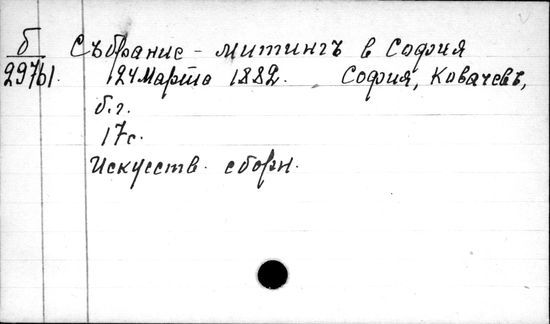 б Събрание - митингъ в София
29761. 24 Марта 1882. София, Ковачевъ,
б.г.
17 с.
Искусств. сборн.